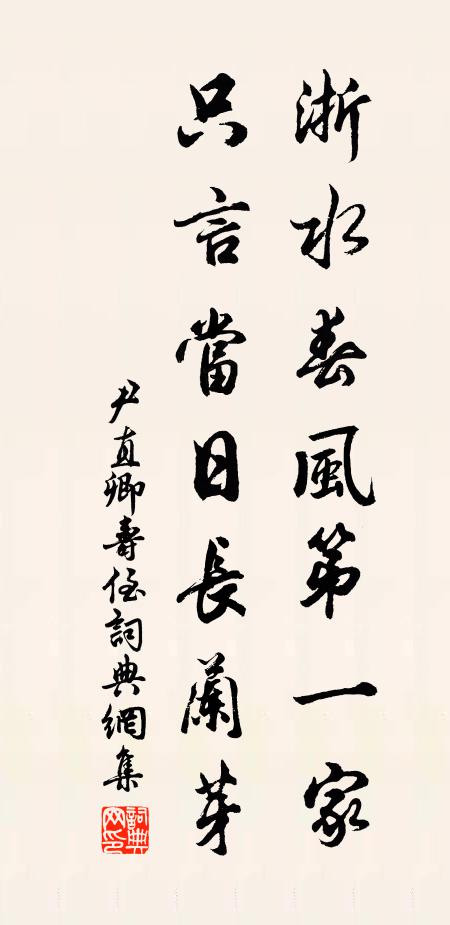 浙水春風第一家
只言當日長蘭芽
尹直卿壽侄詞典網集
詞典网印